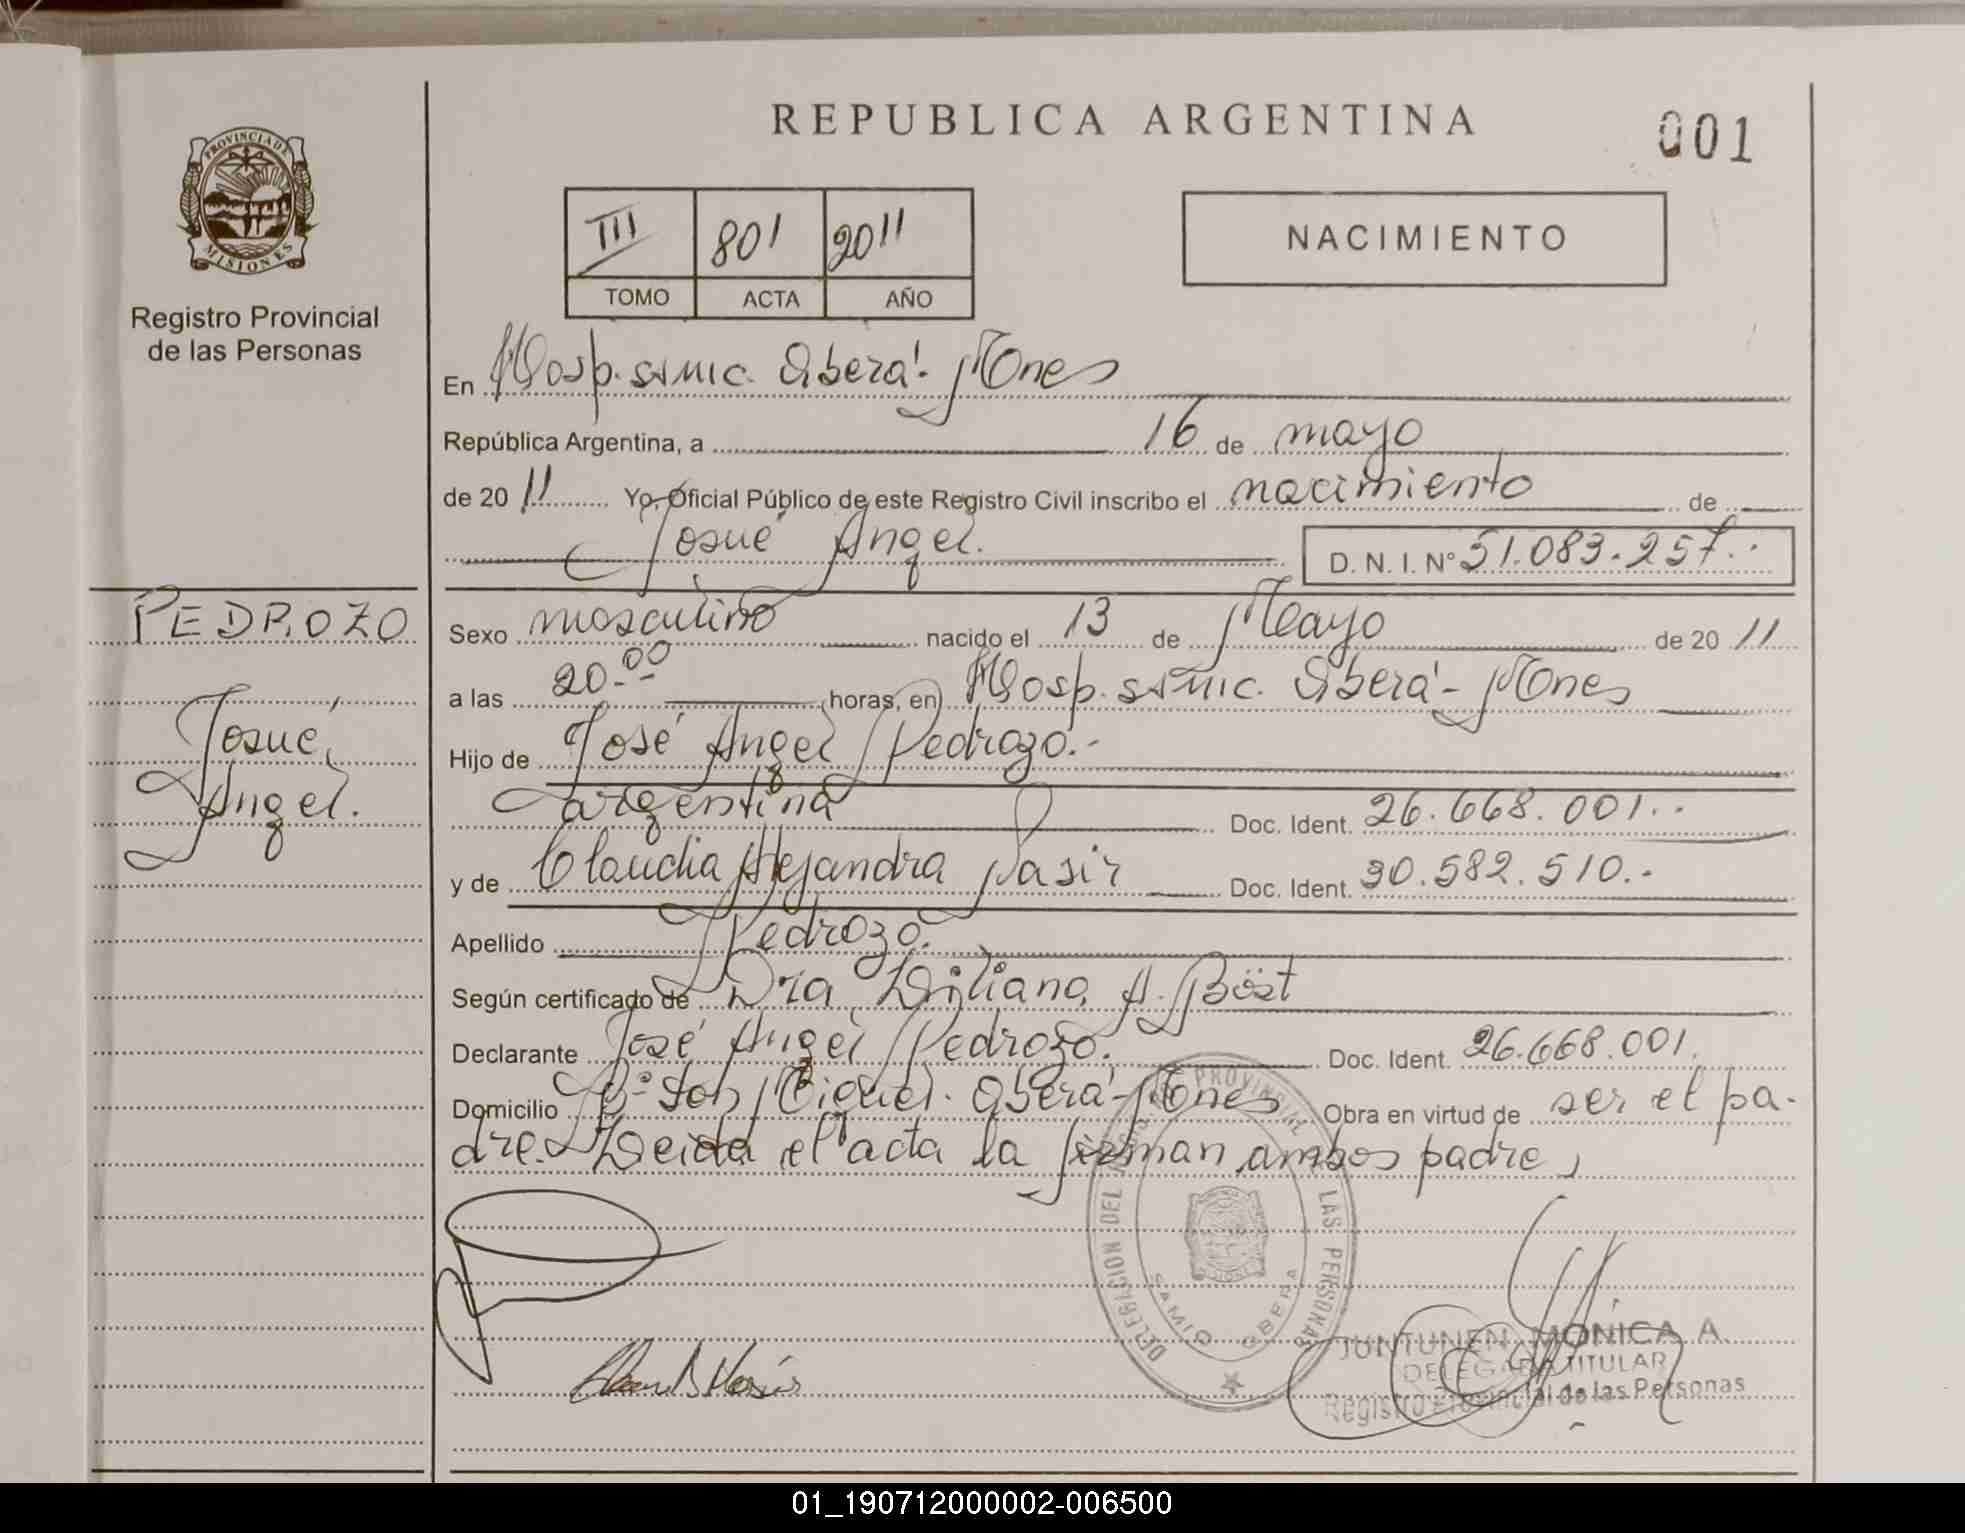 REPUBLICA ARGENTINA
001
PROVINCIA DE MISIONES
Registro Provincial
de las Personas
III 801 2011
TOMO ACTA AÑO
NACIMIENTO
En Hosp. SAMIC. Oberá - Mnes
República Argentina, a 16 de mayo
de 2011 Yo, Oficial Público de este Registro Civil inscribo el nacimiento de
Josué Angel. D. N. I. Nº 51.083.257.-
PEDROZO
Josué
Angel.
Sexo masculino nacido el 13 de Mayo de 2011
a las 20.00 horas, en Hosp. SAMIC. Oberá - Mnes
Hijo de José Angel Pedrozo.-
argentina Doc. Ident. 26.668.001.-
y de Claudia Alejandra Doc. Ident. 30.582.510.-
Apellido Pedrozo.
Según certificado de Dra A. Böst
Declarante José Angel Pedrozo. Doc. Ident. 26.668.001.
Domicilio Bº San Miguel. Oberá - Mnes Obra en virtud de ser el pa-
dre. Leida el acta la firman ambos padres
DELEGACION DEL REGISTRO PROVINCIAL DE LAS PERSONAS
SAMIC OBERA
JUNTUNEN MONICA A.
DELEGADA TITULAR
Registro Provincial de las Personas
01_190712000002-006500